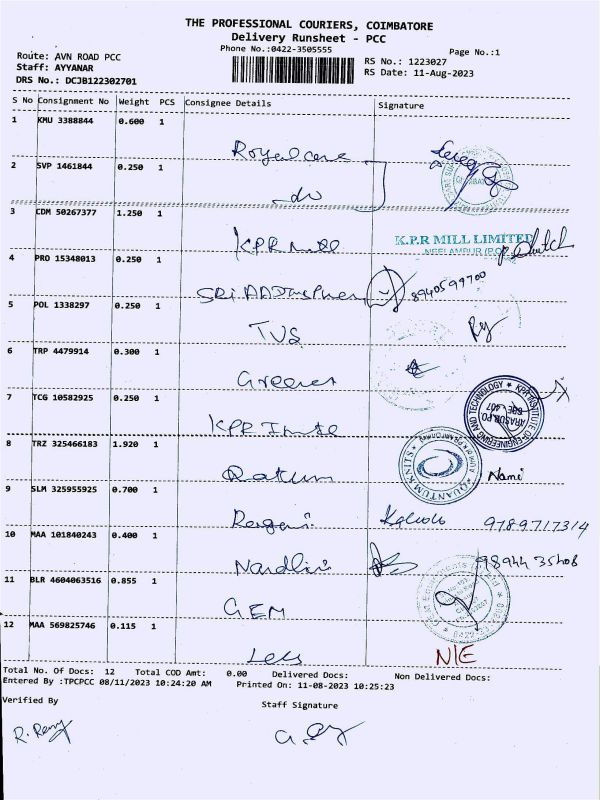 THE PROFESSIONAL COURIERS, COIMBATORE
Delivery Runsheet - PCC
Phone No.:0422-3505555
Page No.:1
Route: AVN ROAD PCC
RS No.: 1223027
Staff: AYYANAR
RS Date: 11-Aug-2023
DRS No.: DCJB122302701
S No Consignment No Weight PCS Consignee Details Signature
1 KMU 3388844 0.600 1
Royalcare
2 SVP 1461844 0.250 1
do
3 CDM 50267377 1.250 1
KPR mill K.P.R MILL LIMITED
NEELAMPUR (P.O)
4 PRO 15348013 0.250 1
8940599700
5 POL 1338297 0.250 1
TVS
6 TRP 4479914 0.300 1
7 TCG 10582925 0.250 1
KPR INSTITUTE OF ENGINEERING AND TECHNOLOGY
ARASUR.PO
641 407
KPR
8 TRZ 325466183 1.920 1
QUANTUM KNITS
9 SLM 325955925 0.700 1
9789717314
10 MAA 101840243 0.400 1
98944 35408
11 BLR 4604063516 0.855 1
GEM
12 MAA 569825746 0.115 1
N/E
Total No. Of Docs: 12 Total COD Amt: 0.00 Delivered Docs: Non Delivered Docs:
Entered By :TPCPCC 08/11/2023 10:24:20 AM Printed On: 11-08-2023 10:25:23
Verified By
Staff Signature